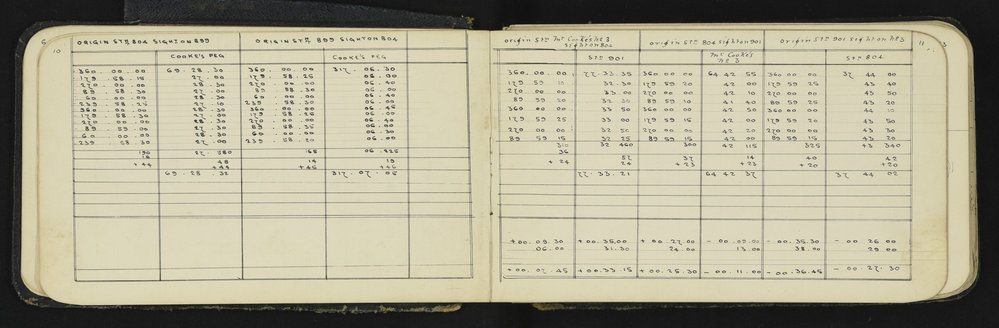 6
10
ORIGIN STN 804 SIGHT ON 899 ORIGIN STN 899 SIGHT ON 804
COOKE'S PEG COOKE'S PEG
360 . 00 . 00 69 . 28 . 30 360 . 00 . 00 317 . 06 . 30
179 . 58 . 15 27 . 00 179 . 58 . 25 06 . 00
270 . 00 . 00 28 . 30 270 . 00 . 00 06 . 40
89 . 58 . 30 27 . 00 89 . 58 . 30 06 . 00
60 . 00 . 00 28 . 30 60 . 00 . 00 06 . 40
239 . 58 . 25 27 . 10 239 . 58 . 30 06 . 00
360 . 00 . 00 28 . 30 360 . 00 . 00 06 . 45
179 . 58 . 30 27 . 00 179 . 58 . 25 06 . 00
270 . 00 . 00 28 . 30 270 . 00 . 00 06 . 40
89 . 59 . 00 27 . 30 89 . 58 . 35 06 . 00
60 . 00 . 00 28 . 30 60 . 00 . 00 06 . 30
239 . 58 . 30 27 . 00 239 . 58 . 20 06 . 00
190 27 . 580 165 06 . 225
16 48 14 19
+ 44 + 44 + 46 + 46
69 . 28 . 32 317 . 07 . 05
11
ORIGIN STN 804 SIGHT ON 901 ORIGIN STN 901 SIGHT ON No 3
SIGHT ON 804
STN 901 STN 804
No 3
360 . 00 . 00 77 . 33 . 35 360 00 00 64 42 55 360 00 00 37 44 00
32 30 179 59 20 42 00 179 59 25 43 40
270 00 00 33 00 270 00 00 42 10 270 00 00 43 50
89 59 20 89 59 10 41 40 89 59 25 43 20
360 00 00 33 50 360 00 00 42 50 360 00 00 44 10
179 59 25 33 00 179 59 15 42 00 179 59 20 43 50
270 00 00 32 50 270 00 00 42 20 270 00 00 43 30
89 59 15 32 25 89 59 15 42 00 89 59 15 43 20
310 32 460 300 42 115 325 43 340
36 57 37 14 40 42
+ 24 24 + 23 + 23 + 20 + 20
77 . 33 . 21 64 42 37 37 44 02
+ 00 . 09 . 30 + 00 . 35.00 + 00 . 27 . 00 - 00 . 09 . 00 - 00 . 35.30 - 00 26 00
06 . 00 31 . 30 24 . 00 13.00 38 . 00 29 00
+ 00 . 07 . 45 + 00.33 . 15 + 00 . 25 . 30 - 00 . 11 . 00 - 00 . 36.45 - 00 . 27 . 30